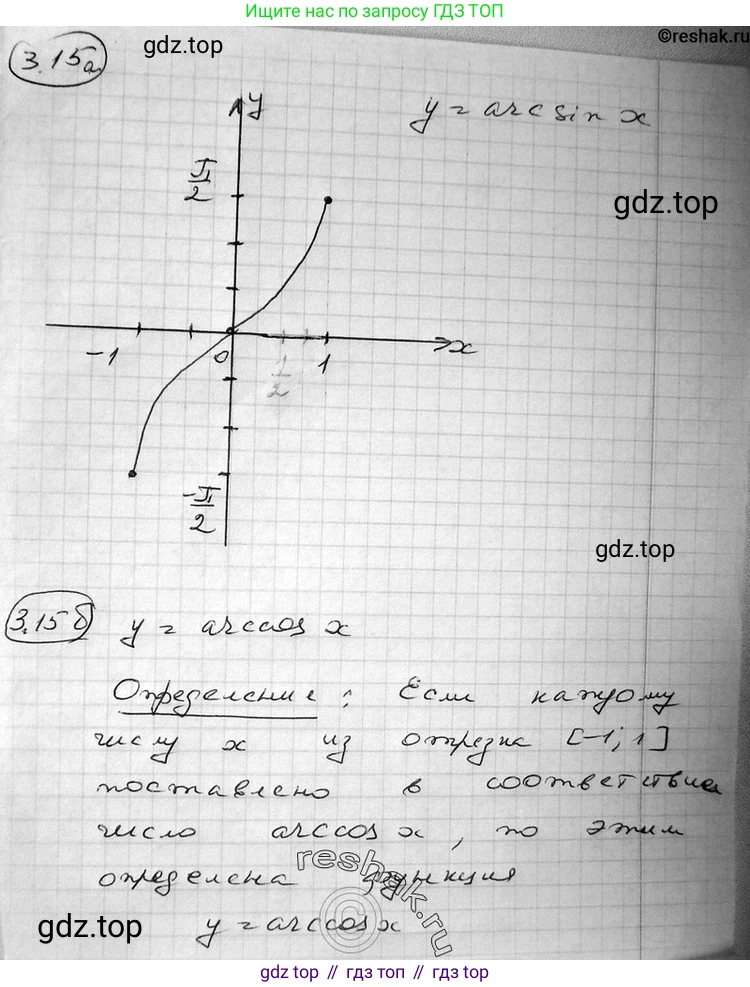 Ищите нас по запросу ГДЗ ТОП
©reshak.ru
3.15а
gdz.top
y
y = arcsin x
π/2
gdz.top
-1
0
1/2
1
x
-π/2
gdz.top
3.15 б
y = arccos x
Определение: Если каждому
числу x из отрезка [-1; 1]
поставлено в соответствие
число arccos x, то этим
определена функция
reshak.ru
©
gdz.top
y = arccos x
gdz top // гдз топ // gdz top